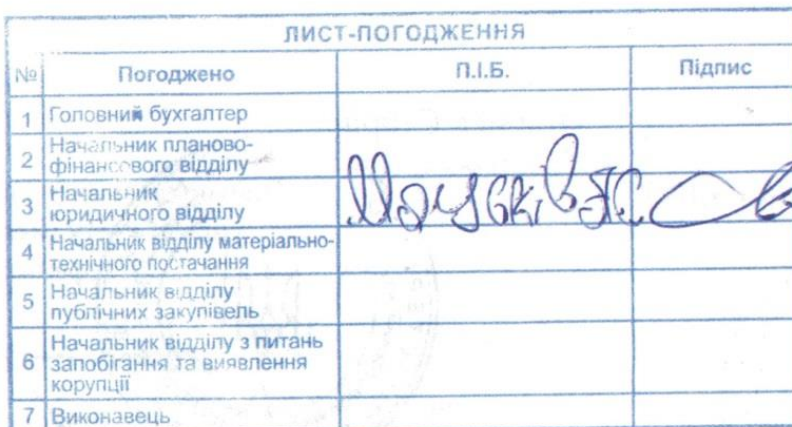 ЛИСТ-ПОГОДЖЕННЯ
№ Погоджено П.І.Б. Підпис
1 Головний бухгалтер
2 Начальник планово-
фінансового відділу
3 Начальник
юридичного відділу
4 Начальник відділу матеріально-
технічного постачання
5 Начальник відділу
публічних закупівель
6 Начальник відділу з питань
запобігання та виявлення
корупції
7 Виконавець